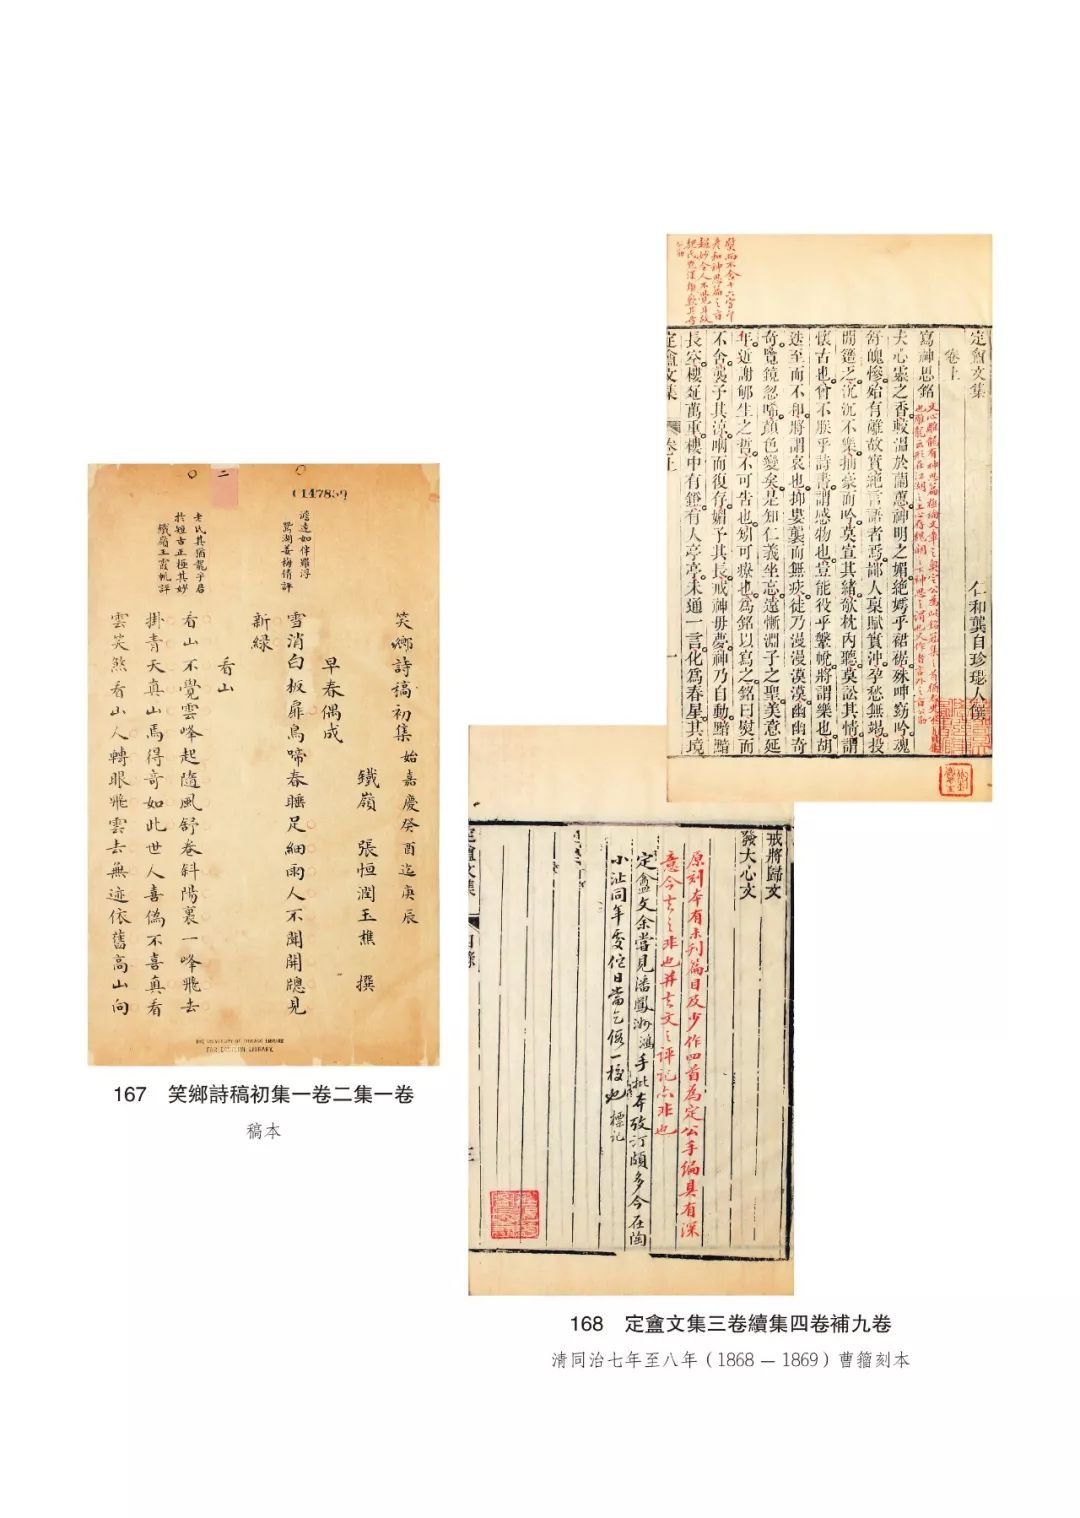 C147859
笑鄉詩稿初集 始嘉慶癸酉迄庚辰
鐵嶺 張恒潤玉樵 撰
早春偶成
雪消白板扉鳥啼春睡足細雨人不聞開牕見
新綠
澹遠如倪羅浮
鴛湖姜梅倩評
看山
看山不覺雲峰起隨風舒卷斜陽裏一峰飛去
掛青天真山焉得奇如此世人喜偽不喜真看
雲笑煞看山人轉眼飛雲去無迹依舊高山向
老氏其猶龍乎居
於短古正極其妙
鐵嶺王霞帆評
THE UNIVERSITY OF CHICAGO LIBRARY
FAR EASTERN LIBRARY
167 笑鄉詩稿初集一卷二集一卷
稿本
定盦文集
卷上
仁和龔自珍璱人撰
寫神思銘
夫心靈之香較溫於蘭蕙神明之媚絕嫮乎裙裾殊呻窈吟魂
舒魄慘殆有離故實絕言語者焉鄙人稟賦實沖孕愁無竭投
閒簉之沉沉不樂抽豪而吟莫宣其緒欹枕內聽莫訟其情謂
懷古也曾不朕乎詩書謂感物也豈能役乎鞶帨將謂樂也胡
迭至而不和將謂哀也抑屢襲而無疚徒乃漫漫漠漠幽幽奇
奇覽鏡忽唏顏色變矣是知仁義坐忘遠慚淵子之聖美意延
年近謝郇生之哲不可告也矧可療也為銘以寫之銘曰熨而
不舍襲予其涼咽而復存媚予其長戒神毋夢神乃自動黯黯
長空樓疑萬重樓中有鐙有人亭亭未通一言化為春星其境
定盦文集 卷上 一
戒將歸文
發大心文
原刻本有未刊篇目及少作四首為定公手編具有深
意今去之非也并去文之評記亦非也
定盦文余嘗見潘鳳洲鴻手批本攷訂頗多今在陶
小沚同年處他日當乞假一校也 標記
定盦文集 目錄
168 定盦文集三卷續集四卷補九卷
清同治七年至八年（1868 — 1869）曹籀刻本